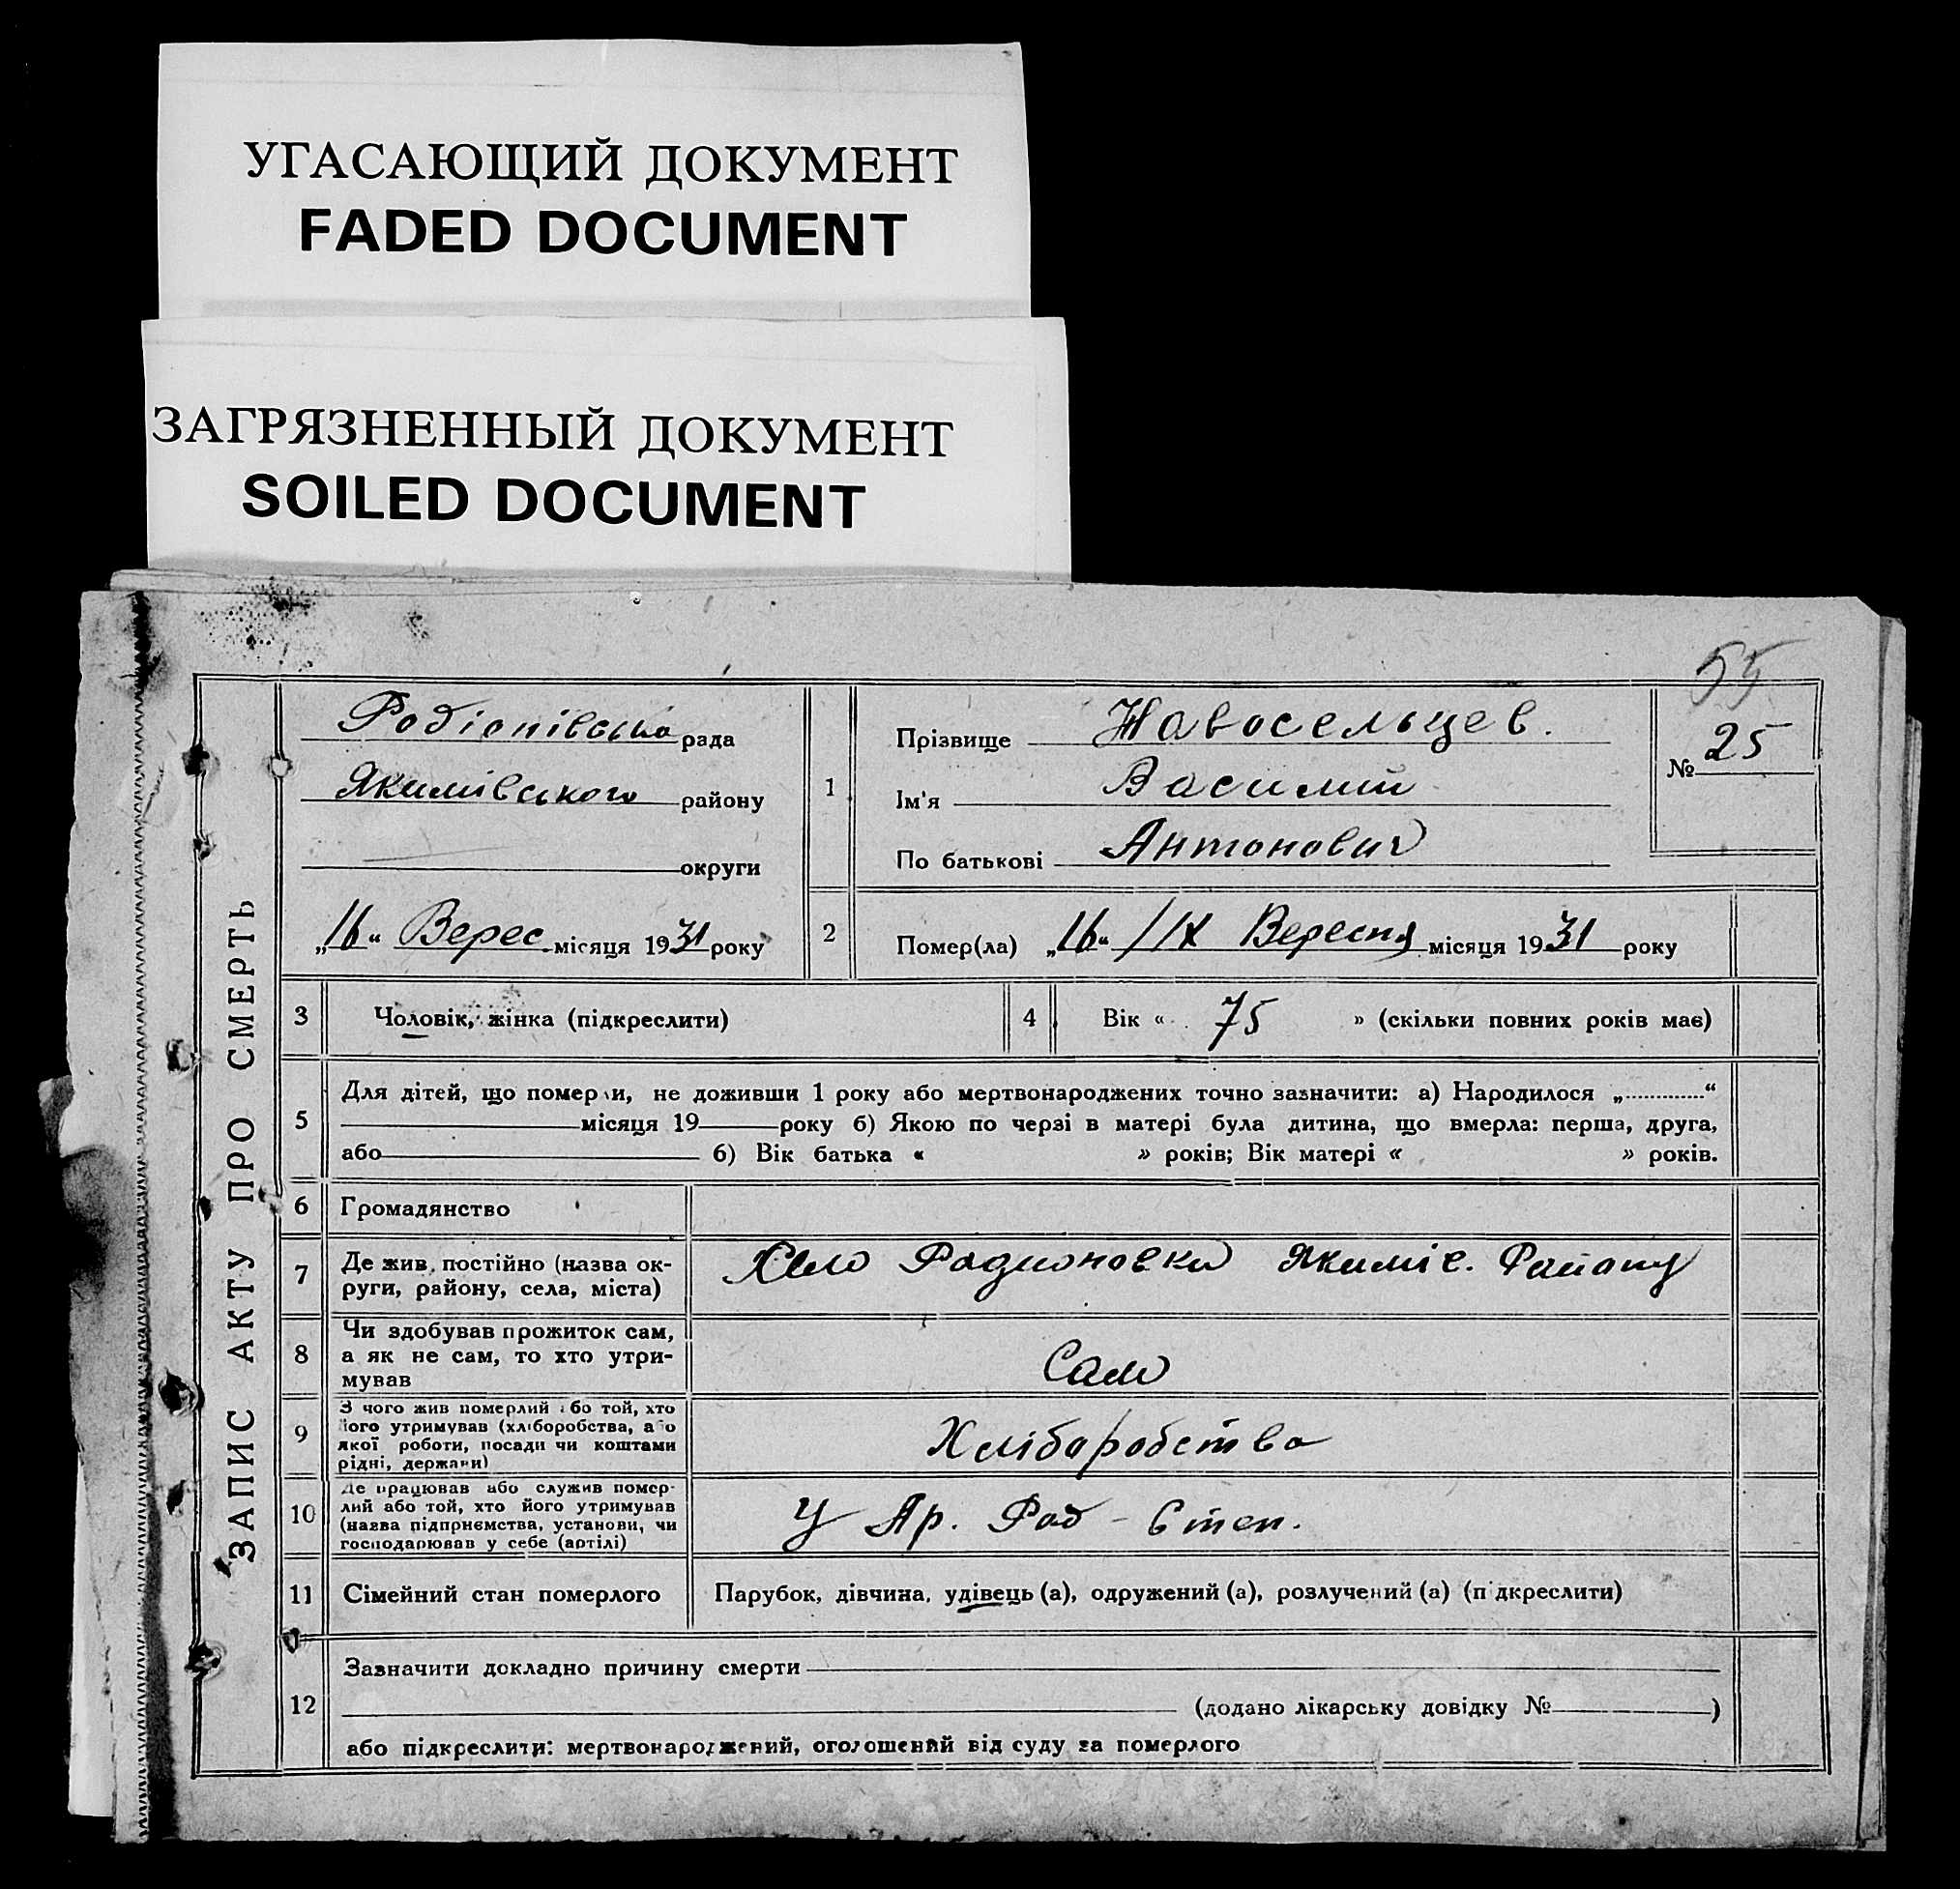 УГАСАЮЩИЙ ДОКУМЕНТ
FADED DOCUMENT
ЗАГРЯЗНЕННЫЙ ДОКУМЕНТ
SOILED DOCUMENT
55
ЗАПИС АКТУ ПРО СМЕРТЬ
Родіонівська рада
Якимівського району
округи
„16“ Верес місяця 1931 року
1
Прізвище Новосельцев.
Ім'я Василий
По батькові Антонович
№ 25
2
Помер(ла) „16“ /IX Вересня місяця 1931 року
3 Чоловік, жінка (підкреслити)
4 Вік « 75 » (скільки повних років має)
5
Для дітей, що померли, не доживши 1 року або мертвонароджених точно зазначити: а) Народилося „ “
місяця 19 року б) Якою по черзі в матері була дитина, що вмерла: перша, друга,
або б) Вік батька « » років; Вік матері « » років.
6 Громадянство
7
Де жив постійно (назва ок-
руги, району, села, міста)
Село Родионовка Якимів. Району
8
Чи здобував прожиток сам,
а як не сам, то хто утри-
мував
Сам
9
З чого жив померлий або той, хто
його утримував (хліборобства, або
якої роботи, посади чи коштами
рідні, держави)
Хліборобство
10
Де працював або служив помер-
лий або той, хто його утримував
(назва підприємства, установи, чи
господарював у себе (артілі)
У Ар. Род - Степ.
11 Сімейний стан померлого
Парубок, дівчина, удівець (а), одружений (а), розлучений (а) (підкреслити)
12
Зазначити докладно причину смерти
(додано лікарську довідку № )
або підкреслити: мертвонароджений, оголошений від суду за померлого